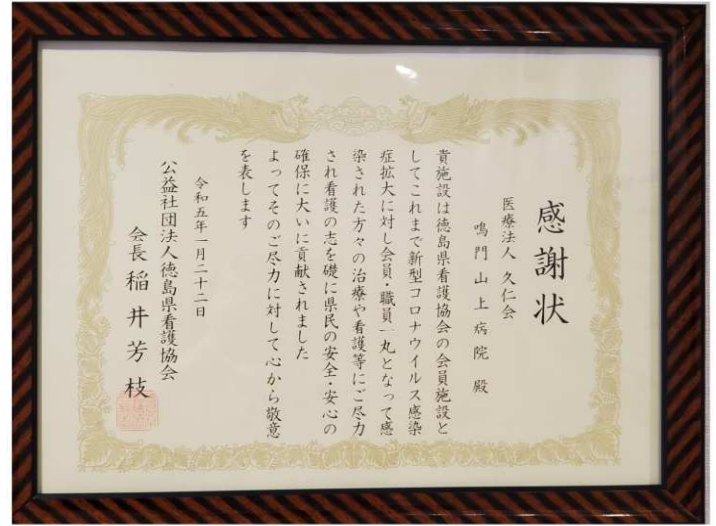 感謝状
医療法人 久仁会
鳴門山上病院 殿
貴施設は徳島県看護協会の会員施設と
してこれまで新型コロナウイルス感染
症拡大に対し会員・職員一丸となって感
染された方々の治療や看護等にご尽力
され看護の志を礎に県民の安全・安心の
確保に大いに貢献されました
よってそのご尽力に対して心から敬意
を表します
令和五年一月二十二日
公益社団法人徳島県看護協会
会長 稲井芳枝